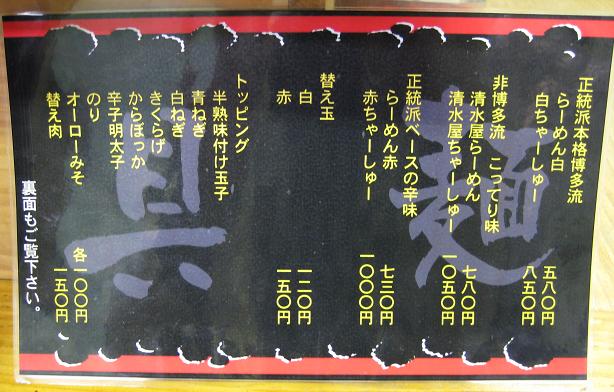 正統派本格博多流
らーめん白 五八〇円
白ちゃーしゅー 八五〇円
非博多流 こってり味
清水屋らーめん 七八〇円
清水屋ちゃーしゅー 一〇五〇円
正統派ベースの辛味
らーめん赤 七三〇円
赤ちゃーしゅー 一〇〇〇円
替え玉
白 一二〇円
赤 一五〇円
トッピング
半熟味付け玉子
青ねぎ
白ねぎ
きくらげ
からぼっか
辛子明太子
のり
オーローみそ 各一〇〇円
替え肉 一五〇円
裏面もご覧下さい。
麺
具